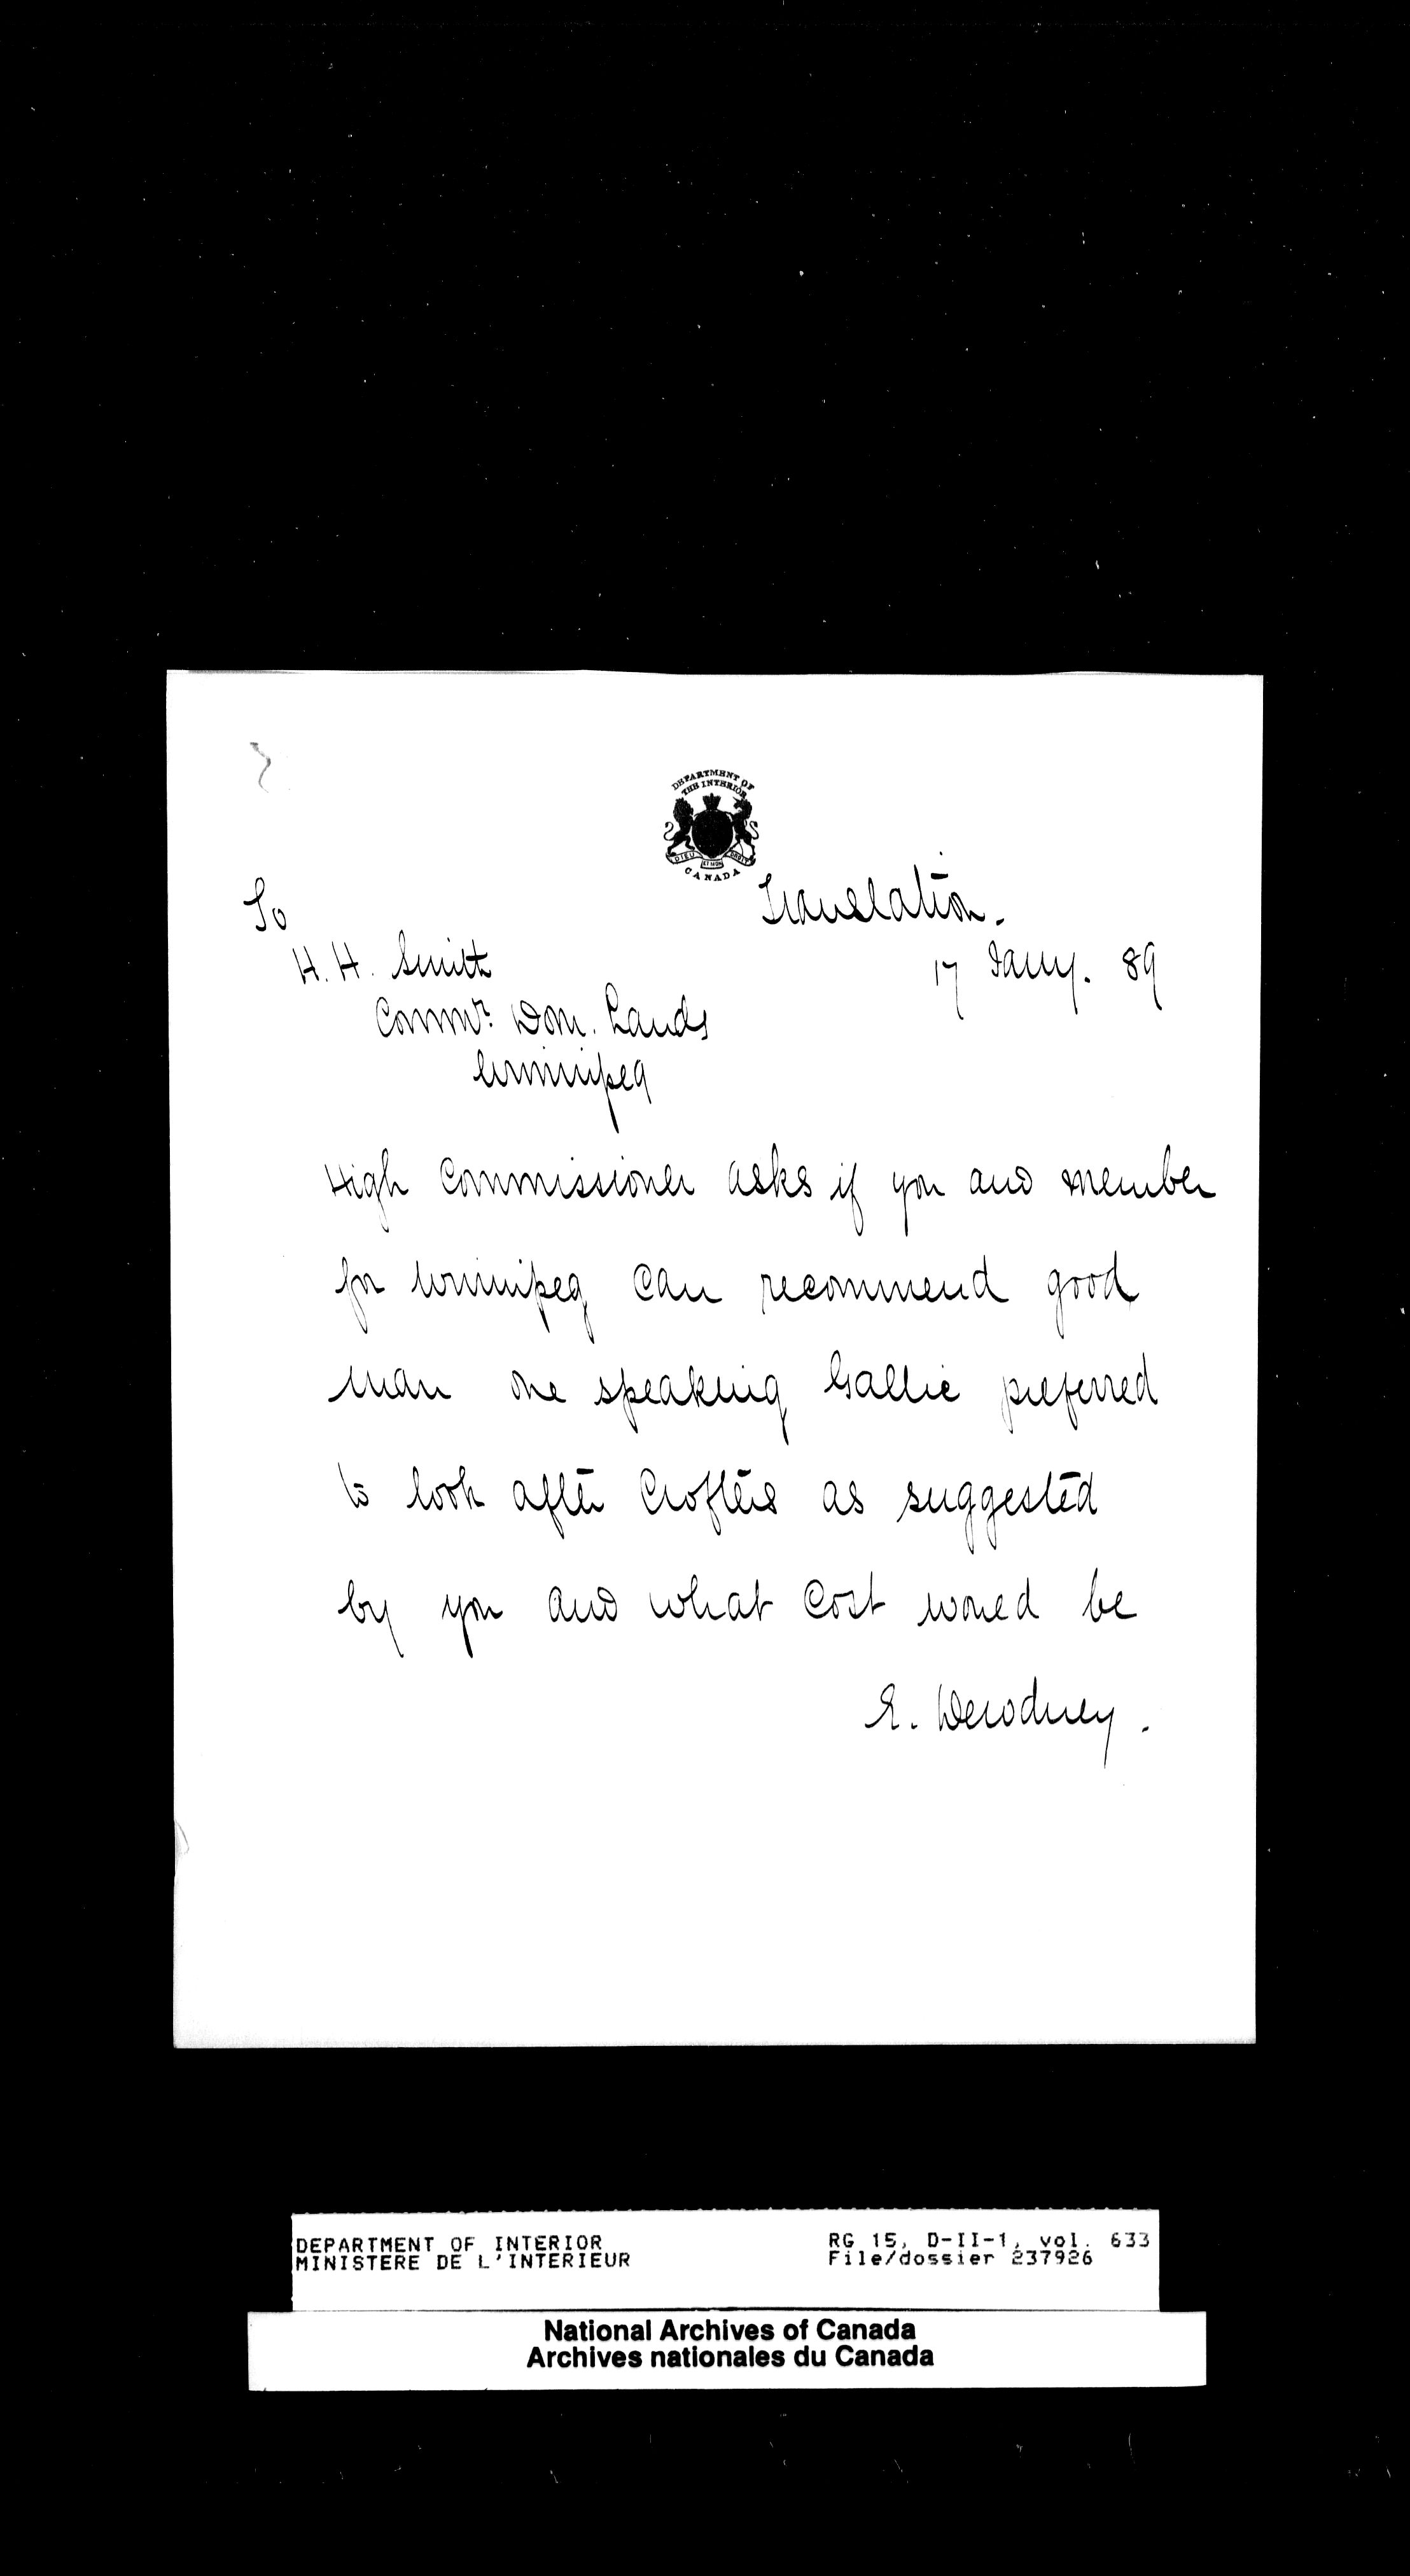 DEPARTMENT OF
THE INTERIOR
DIEU ET MON DROIT
CANADA
Translation.
To
H. H. Smith
17 Jany. 89
Commr. Dom. Lands
Winnipeg
High Commissioner asks if you and member
for Winnipeg can recommend good
man one speaking Gallic preferred
to look after Crofters as suggested
by you and what cost would be
E. Dewdney.
DEPARTMENT OF INTERIOR
MINISTERE DE L'INTERIEUR
RG 15, D-II-1, vol. 633
File/dossier 237926
National Archives of Canada
Archives nationales du Canada